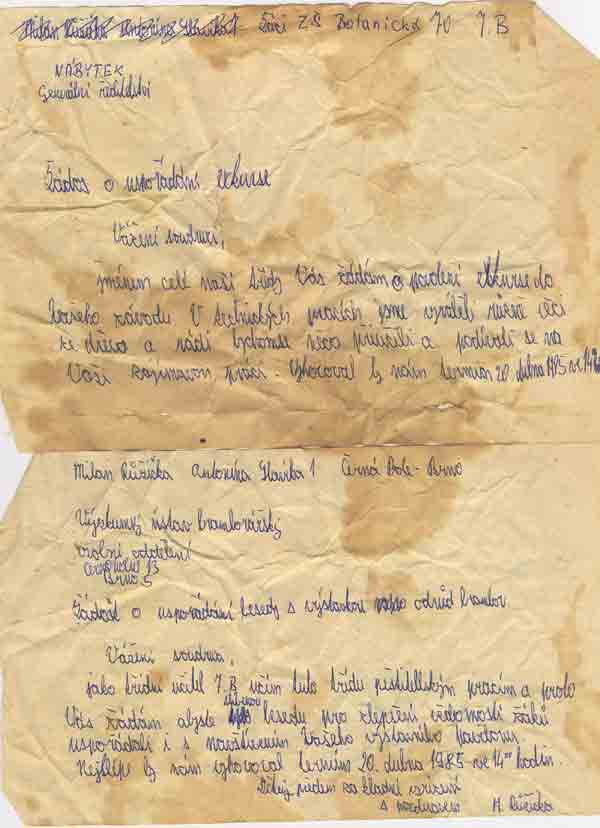 Milan Růžička Antonína Slavíka 1 - Žáci ZŠ Botanická 70 7.B
NÁBYTEK
Generální ředitelství
Žádos o uspořádání exkurse
Vážení soudruzi,
jménem celé naší třídy Vás žádám o povolení exkurse do
Vašeho závodu V technických pracích jsme vyráběli různé věci
ze dřeva a rádi bychom se něco přiučili a podívali se na
Vaši zajímavou práci. Vyhovoval by nám termín 20. dubna 1985 ve 14
Milan Růžička Antonína Slavíka 1 Černá Pole - Brno
Výzkumný ústav bramborářský
oddělení
13
Brno 5
Žádost o uspořádání besedy s výstavkou odrůd brambor
Vážení soudruzi,
jako třídní učitel 7.B učím tuto třídu pěstitelským pracím a proto
Vás žádám abyste besedu pro zlepšení vědomostí žáků
uspořádali i s navštívením Vašeho výstavního pavilonu.
Nejlépe by nám vyhovoval termín 20. dubna 1985 ve 14⁰⁰ hodin.
Děkuji předem za kladné vyřízení
S pozdravem M. Růžička